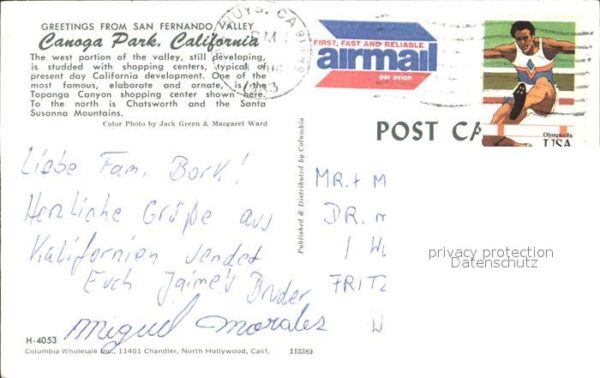 GREETINGS FROM SAN FERNANDO VALLEY
Canoga Park, California
The west portion of the valley, still developing,
is studded with shopping centers, typical of
present day California development. One of the
most famous, elaborate and ornate, is the
Topanga Canyon shopping center shown here.
To the north is Chatsworth and the Santa
Susanna Mountains.
Color Photo by Jack Green & Margaret Ward
NUYS, CA
PM
FIRST, FAST AND RELIABLE
airmail
par avion
Olympics 84
USA
POST CA
Published & Distributed by Columbia
Liebe Fam. Bork!
Herzliche Grüße aus
Kalifornien sendet
Euch Jaime's Bruder
Miguel Morales
MR. + M
DR.
1 W
FRITZ
W
privacy protection
Datenschutz
H-4053
Columbia Wholesale Inc., 11401 Chandler, North Hollywood, Calif.
113389